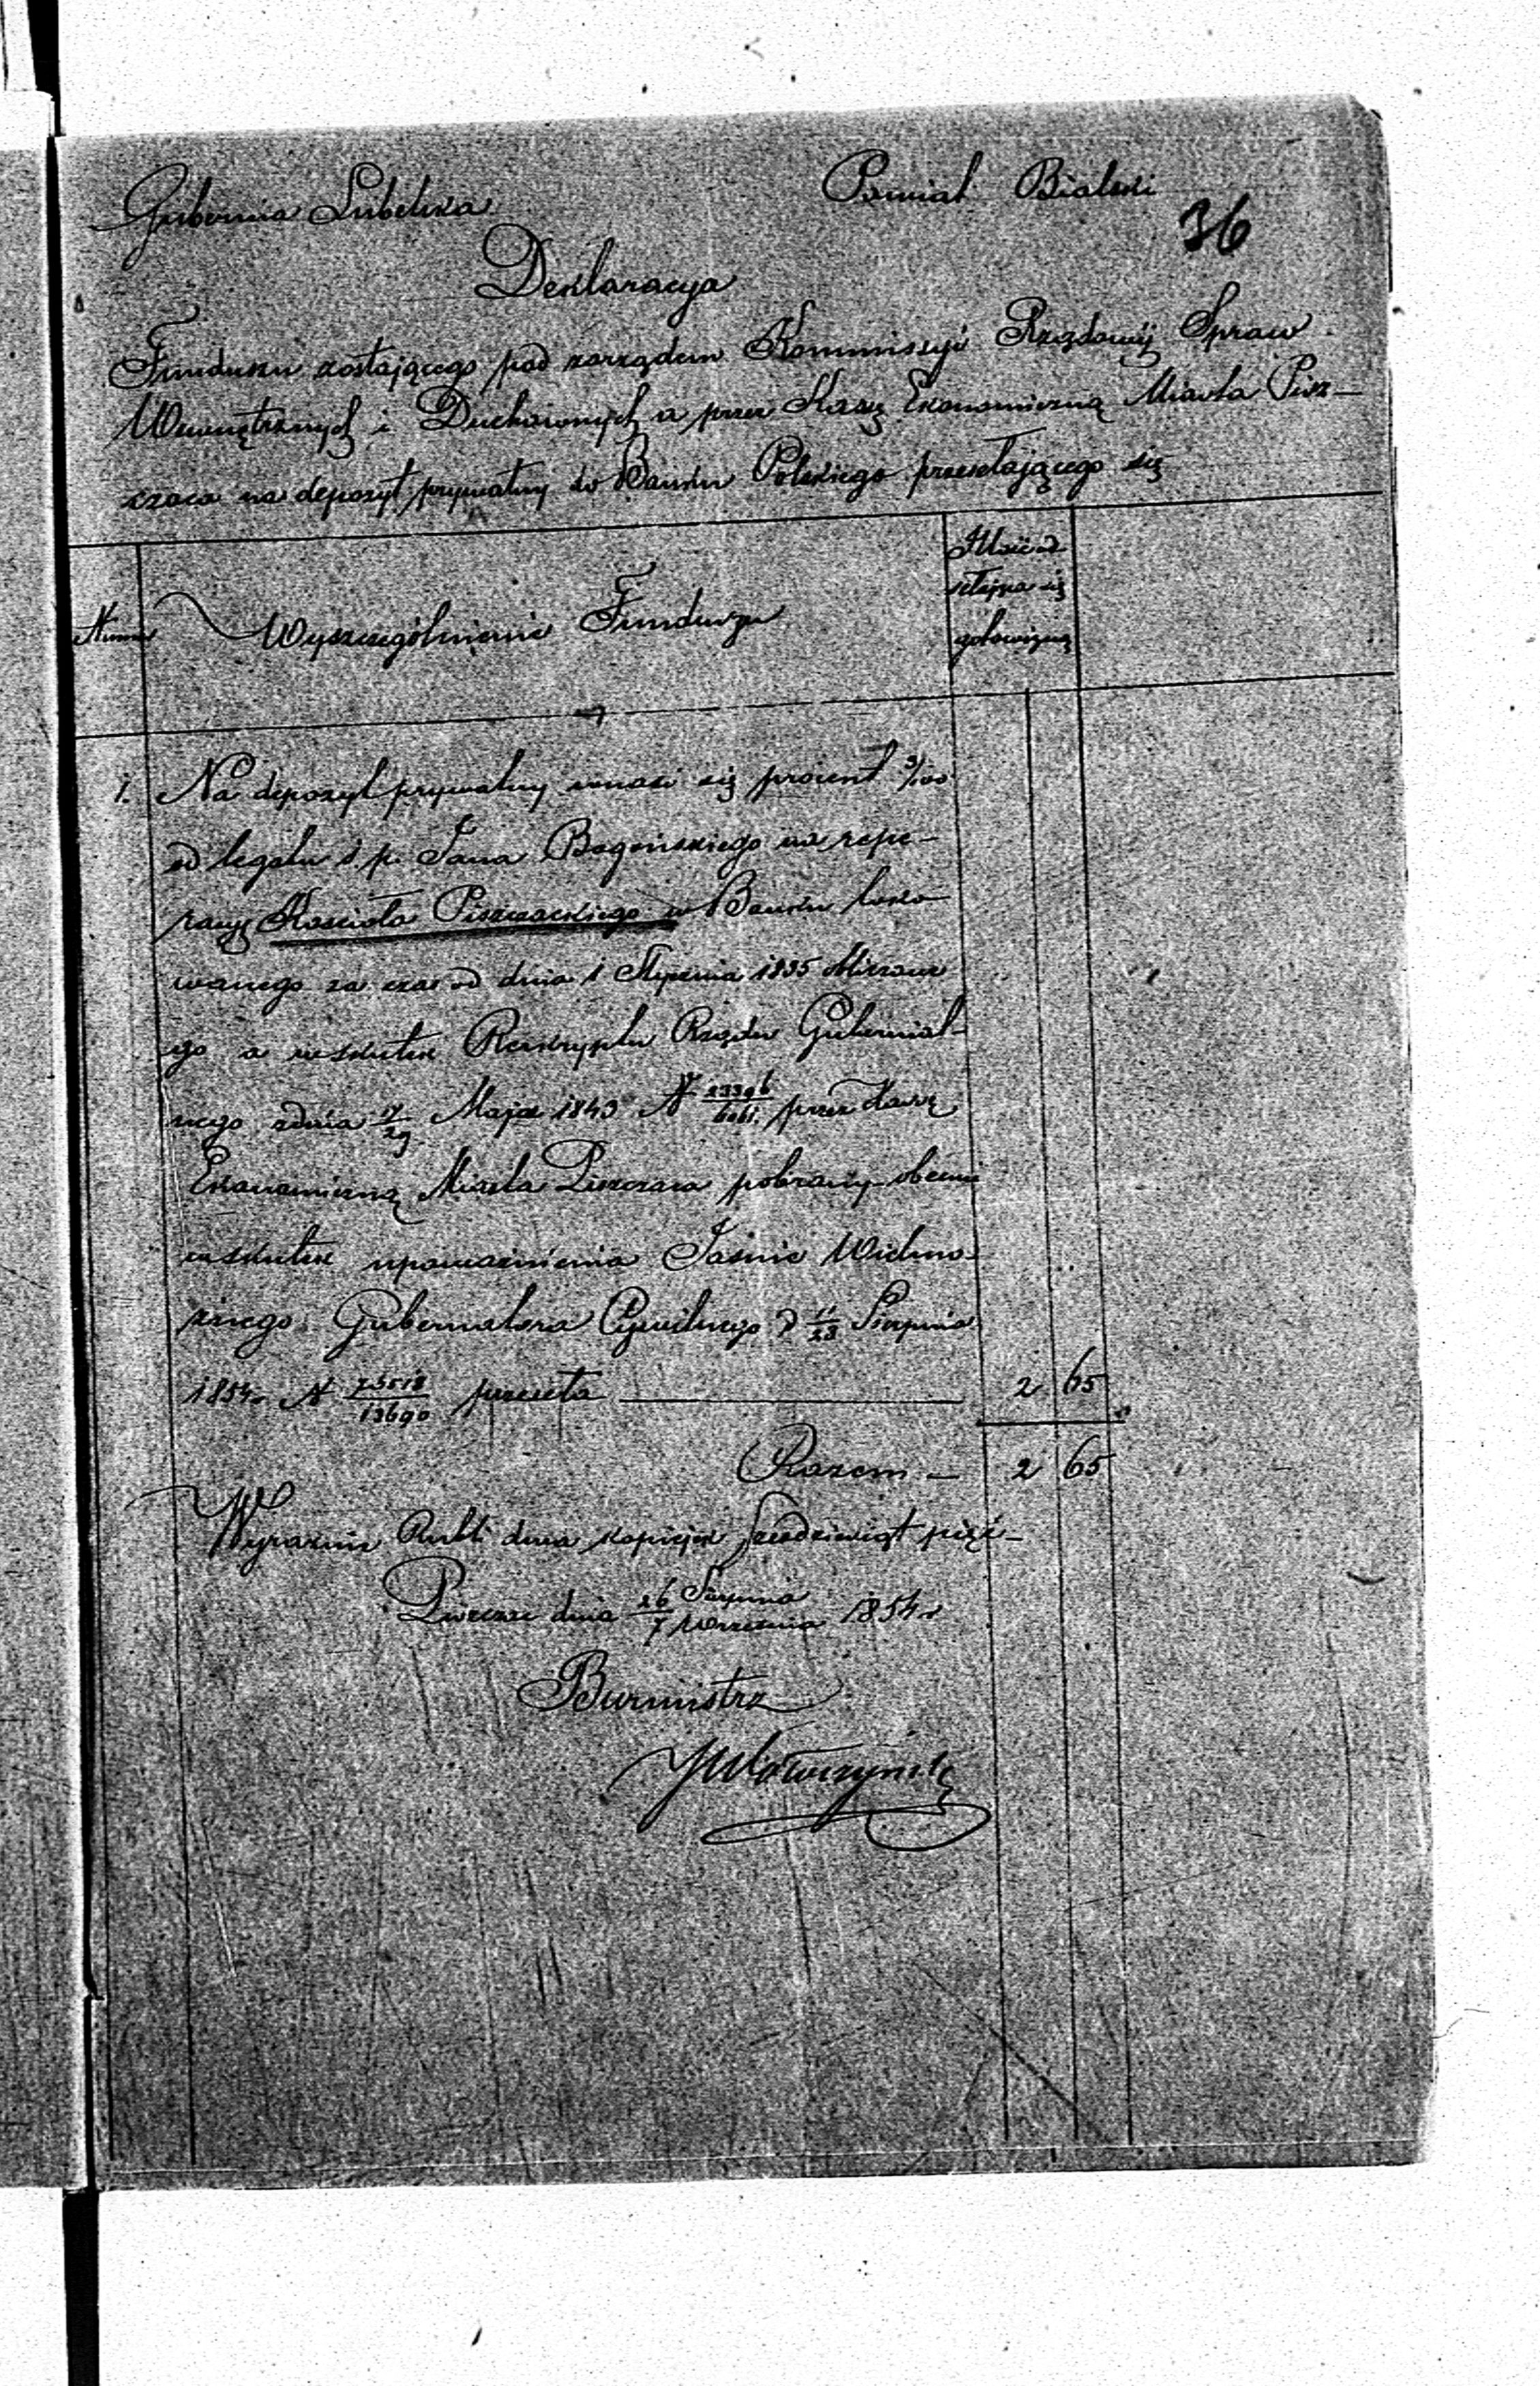 Gubernia Lubelska Powiat Bialski
36
Deklaracya
Funduszu zostającego pod zarządem Kommissyi Rządowéj Spraw
Wewnętrznych i Duchownych a przez Kassę Ekonomiczną Miasta Pisz-
czaca na depozyt prywatny do Banku Polskiego przesełającego się
Numer
Wyszczególnienie Funduszu
Ilość od
sełająca się
gotowizną
1. Na depozyt prywatny wnosi się procent 3/100
od legatu ś. p. Jana Bogońskiego na repe-
racyę Kościoła Piszczackiego w Banku loko
wanego za czas od dnia 1 Stycznia 1835
go a wskutek Reskryptu Rządu Gubernial-
nego z dnia 17/29 Maja 1843 N 23396/6061. przez Kassę
Ekonomiczną Miasta Piszczaca pobrany obecnie
wskutek upoważnienia Jaśnie Wielmo-
żnego Gubernatora Cywilnego d 11/23 Sierpnia
1854 r N 75518/13690 przeseła 2 65
Razem — 2 65
Wyraźnie Rubli dwa kopiejek sześdziesiąt pięć—
Piszczac dnia 26 Sierpnia/7 Września 1854 r
Burmistrz